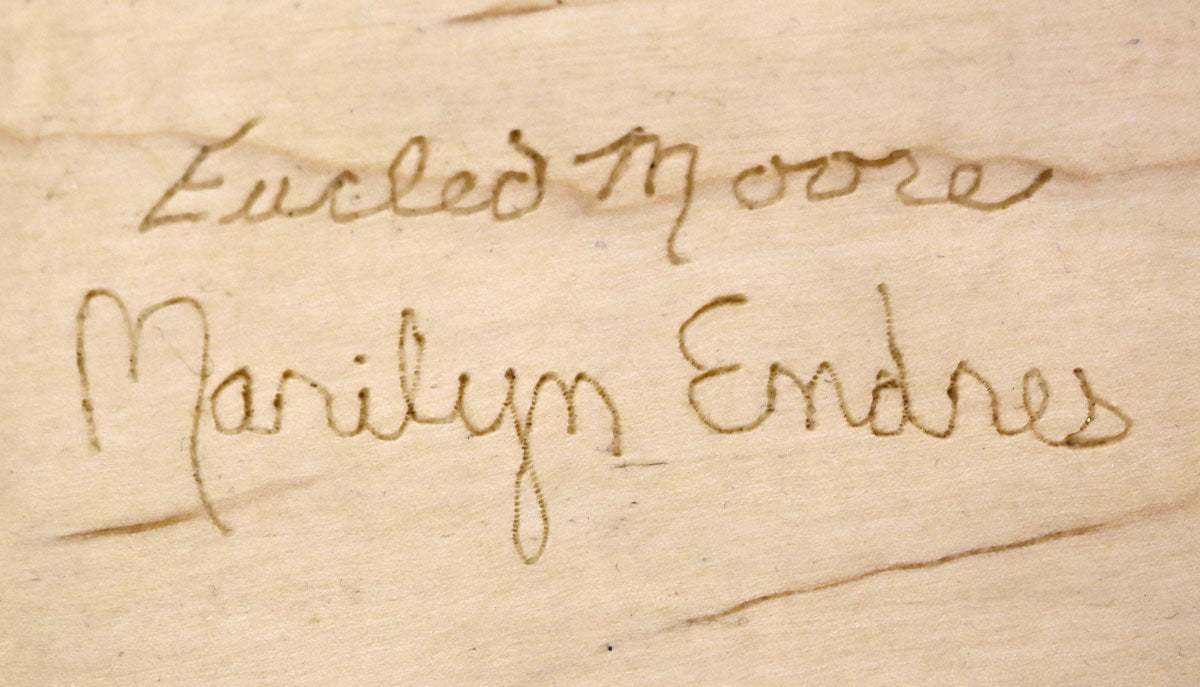 Eucled Moore
Marilyn Endres